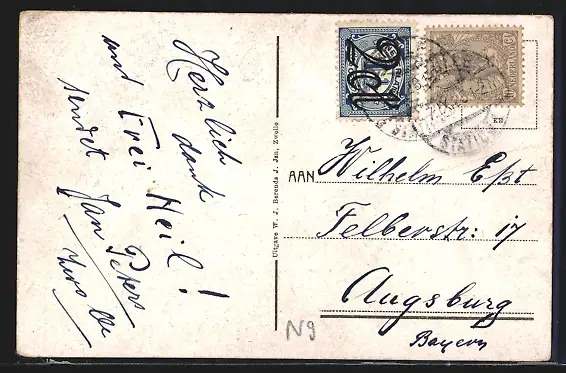 Herzlich
dank
und Frei Heil!
sendet Jan Peters
Zwolle
Uitgave W. J. Berends J. Jzn, Zwolle
N9
2 ct
STATION
AAN
Wilhelm Eßt
Felberstr: 17
Augsburg
Bayern